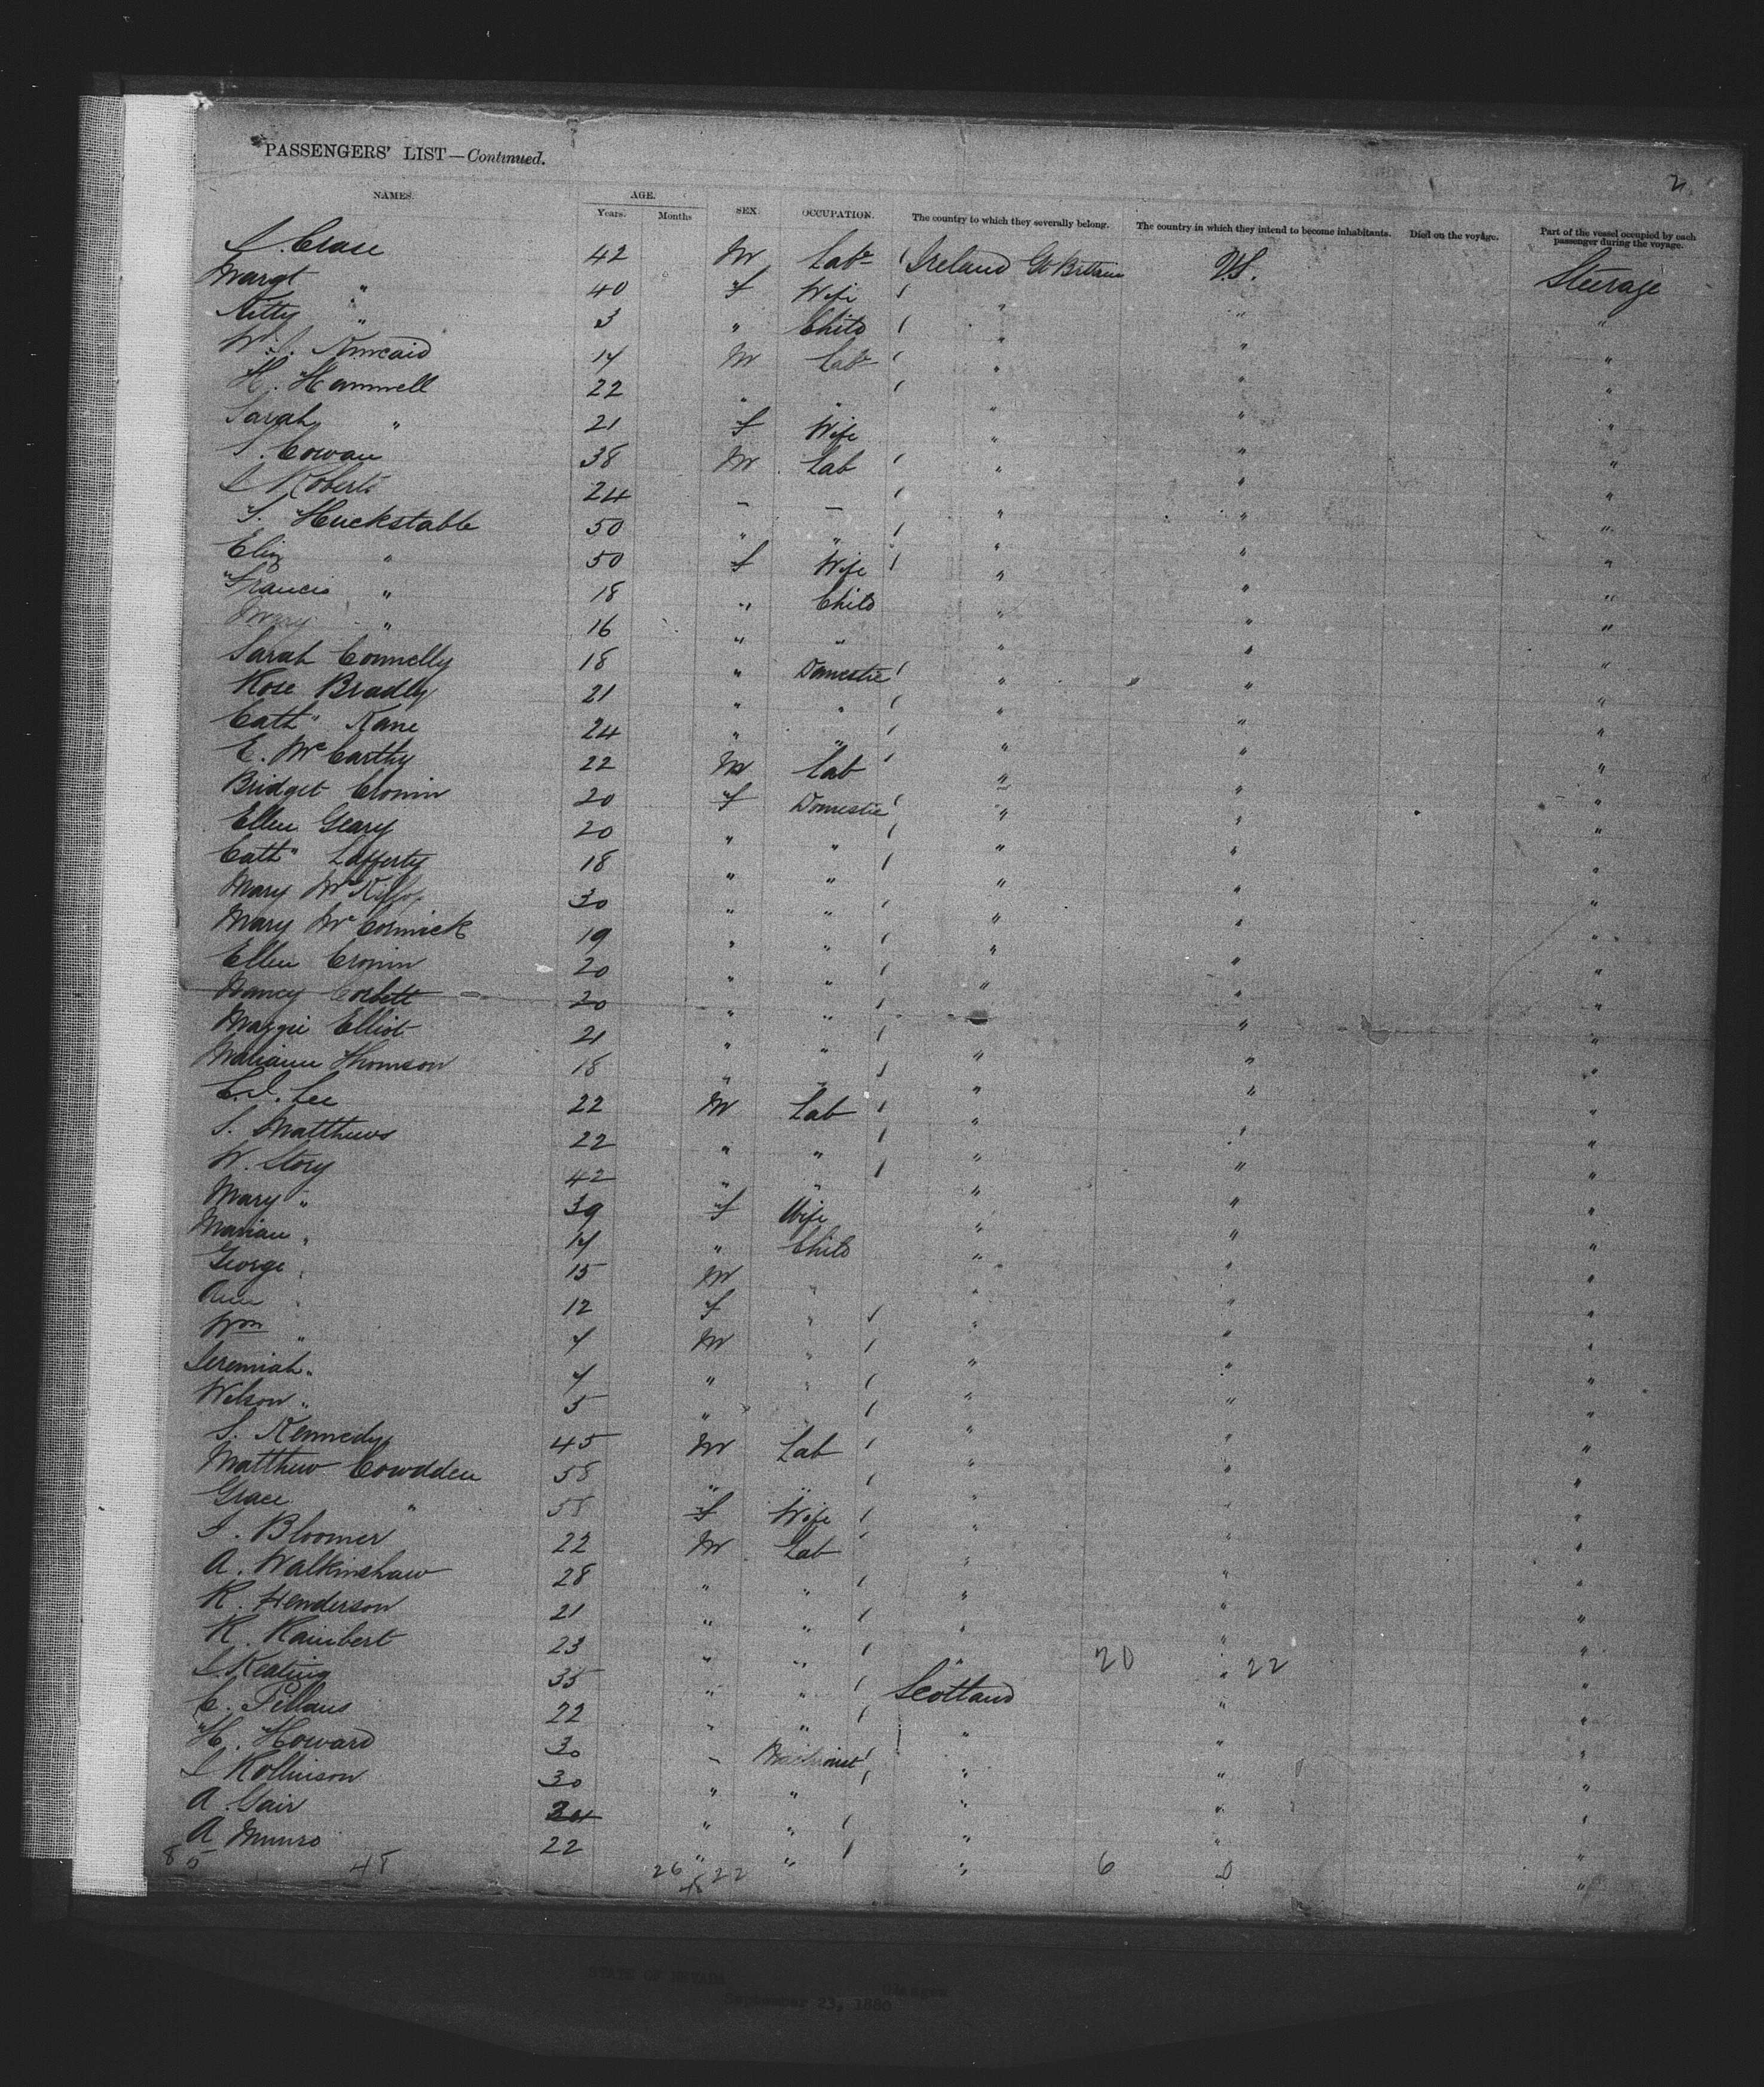 PASSENGERS' LIST—Continued.
2
NAMES. AGE. SEX. OCCUPATION. The country to which they severally belong. The country in which they intend to become inhabitants. Died on the voyage. Part of the vessel occupied by each passenger during the voyage.
Years. Months
42 M Labr Ireland Gt Britain U.S. Steerage
Margt " 40 f Wife " " "
Kitty " 3 " Child " " "
W. J. Kincaid 14 M Labr " " "
H. Hammell 22 " " " " "
Sarah " 21 f Wife " " "
S. Cowan 38 M Lab " " "
J Roberts 24 – – " " "
S. Huckstable 50 " " " " "
Eliz " 50 f Wife " " "
Francis " 18 " Child " " "
Mary " 16 " " " " "
Sarah Connelly 18 " Domestic " " "
Rose Bradley 21 " " " " "
Cath" Kane 24 " " " " "
E. McCarthy 22 M Lab " " "
Bridget Cronin 20 f Domestic " " "
Ellen Geary 20 " " " " "
Cath" Lafferty 18 " " " " "
Mary 30 " " " " "
Mary McCormick 19 " " " " "
Ellen Cronin 20 " " " " "
Nancy Corbett 20 " " " " "
Maggie Elliot 21 " " " " "
Mariann Thomson 18 " " " " "
C. J. Lee 22 M Lab " " "
S. Matthews 22 " " " " "
W. Story 42 " " " " "
Mary " 39 f Wife " " "
Marian " 14 " Child " " "
George " 15 M " " " "
Ann " 12 f " " " "
Wm " 7 M " " " "
Jeremiah " 7 " " " " "
Wilson " 5 " " " " "
S. Kennedy 45 M Lab " " "
Matthew Cowdden 58 " " " " "
Grace " 58 f Wife " " "
J. Bloomer 22 M Lab " " "
A. Walkinshaw 28 " " " " "
R. Henderson 21 " " " " "
R. Raimbert 23 " " " 20 " 22 "
J. Keating 35 " " Scotland " "
C. Pillans 22 " " " " "
H. Howard 30 – Machinist " " "
J Rollinson 30 " " " " "
A. Gair " " " " "
A Munro 22 " " " " "
85 48 26 22 6
48
STATE OF NEVADA Glasgow
September 23, 1880